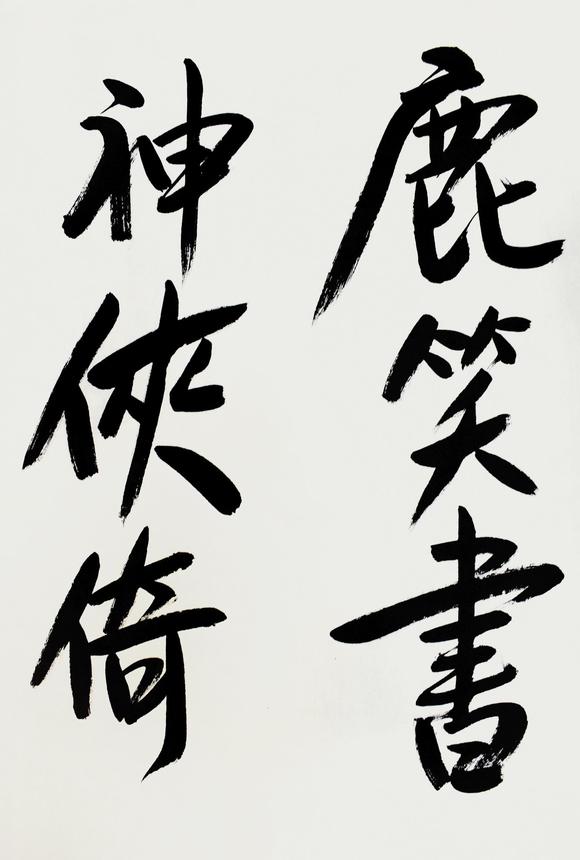 鹿笑書
神俠倚